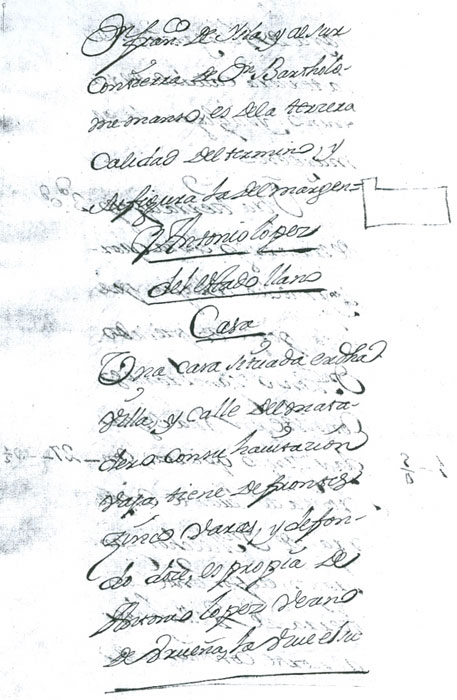 Dn. Franco. de Hita, y al Sur
con tierra de Dn. Bartholo-
me manso, es de la terzera
Calidad del termino, y
su figura la del margen=
Antonio lopez
del estado llano
Casa
Una casa situada en dha
villa, y calle del mata-
dero con su havitazion
vaja, tiene de frontis
zinco varas, y de fon-
do doze, es propia de
Antonio lopez vezino
de Brueña, la que